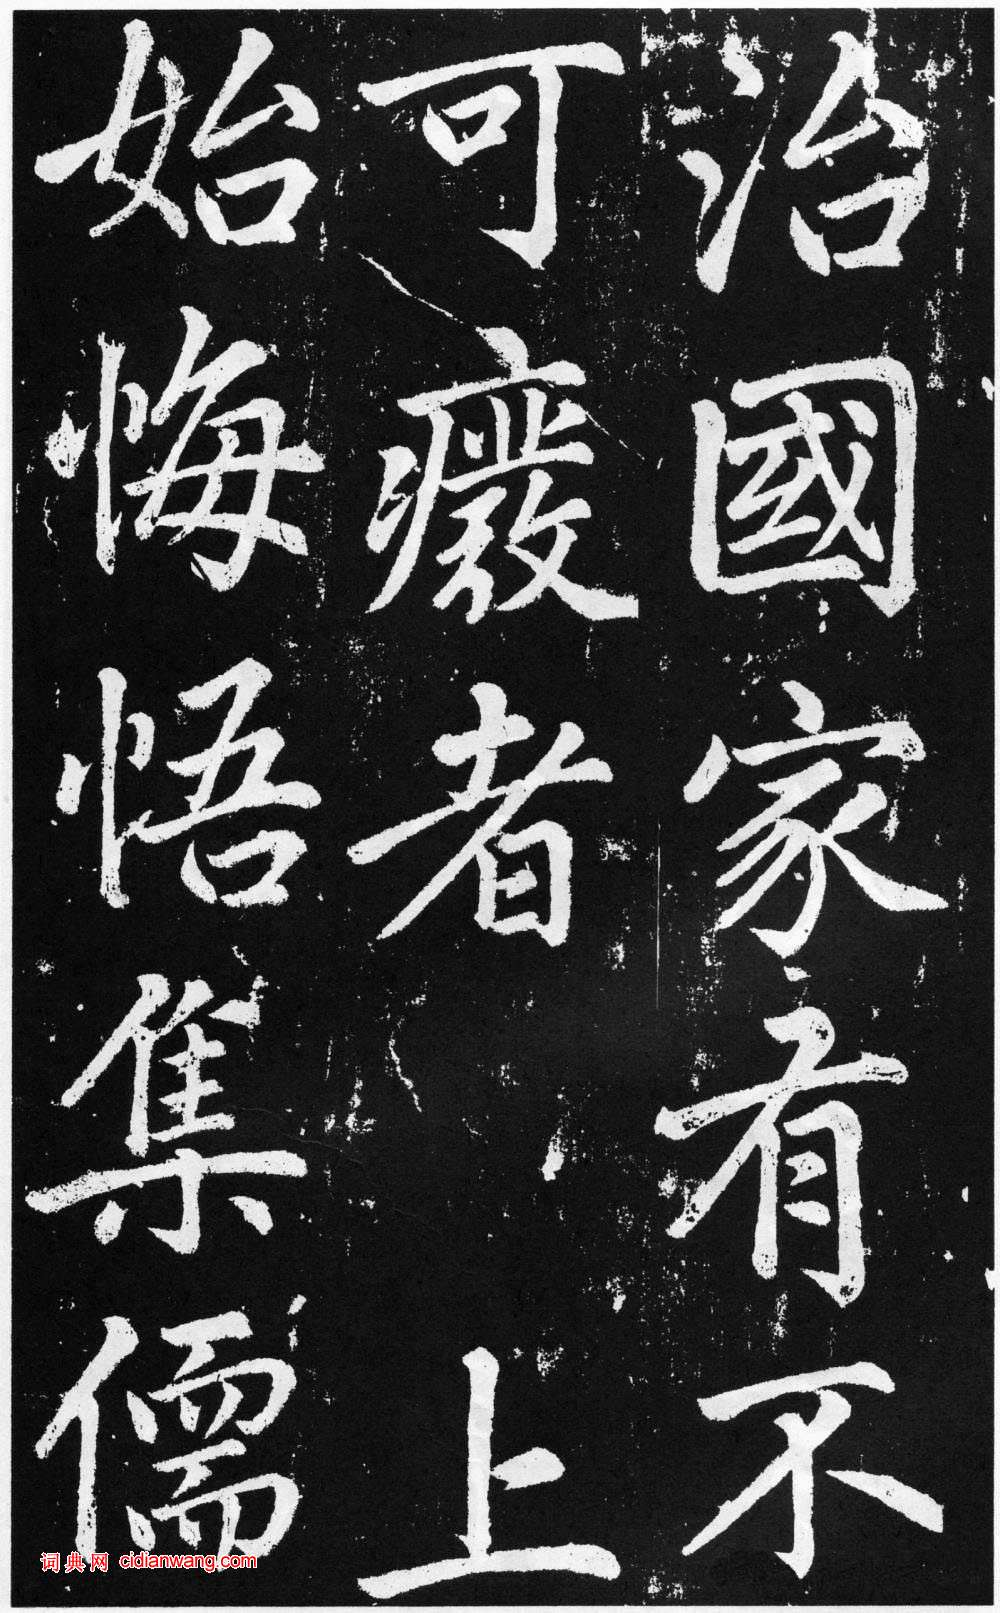 治國家有不
可癈者上
始悔悟集儒
词典网 cidianwang.com